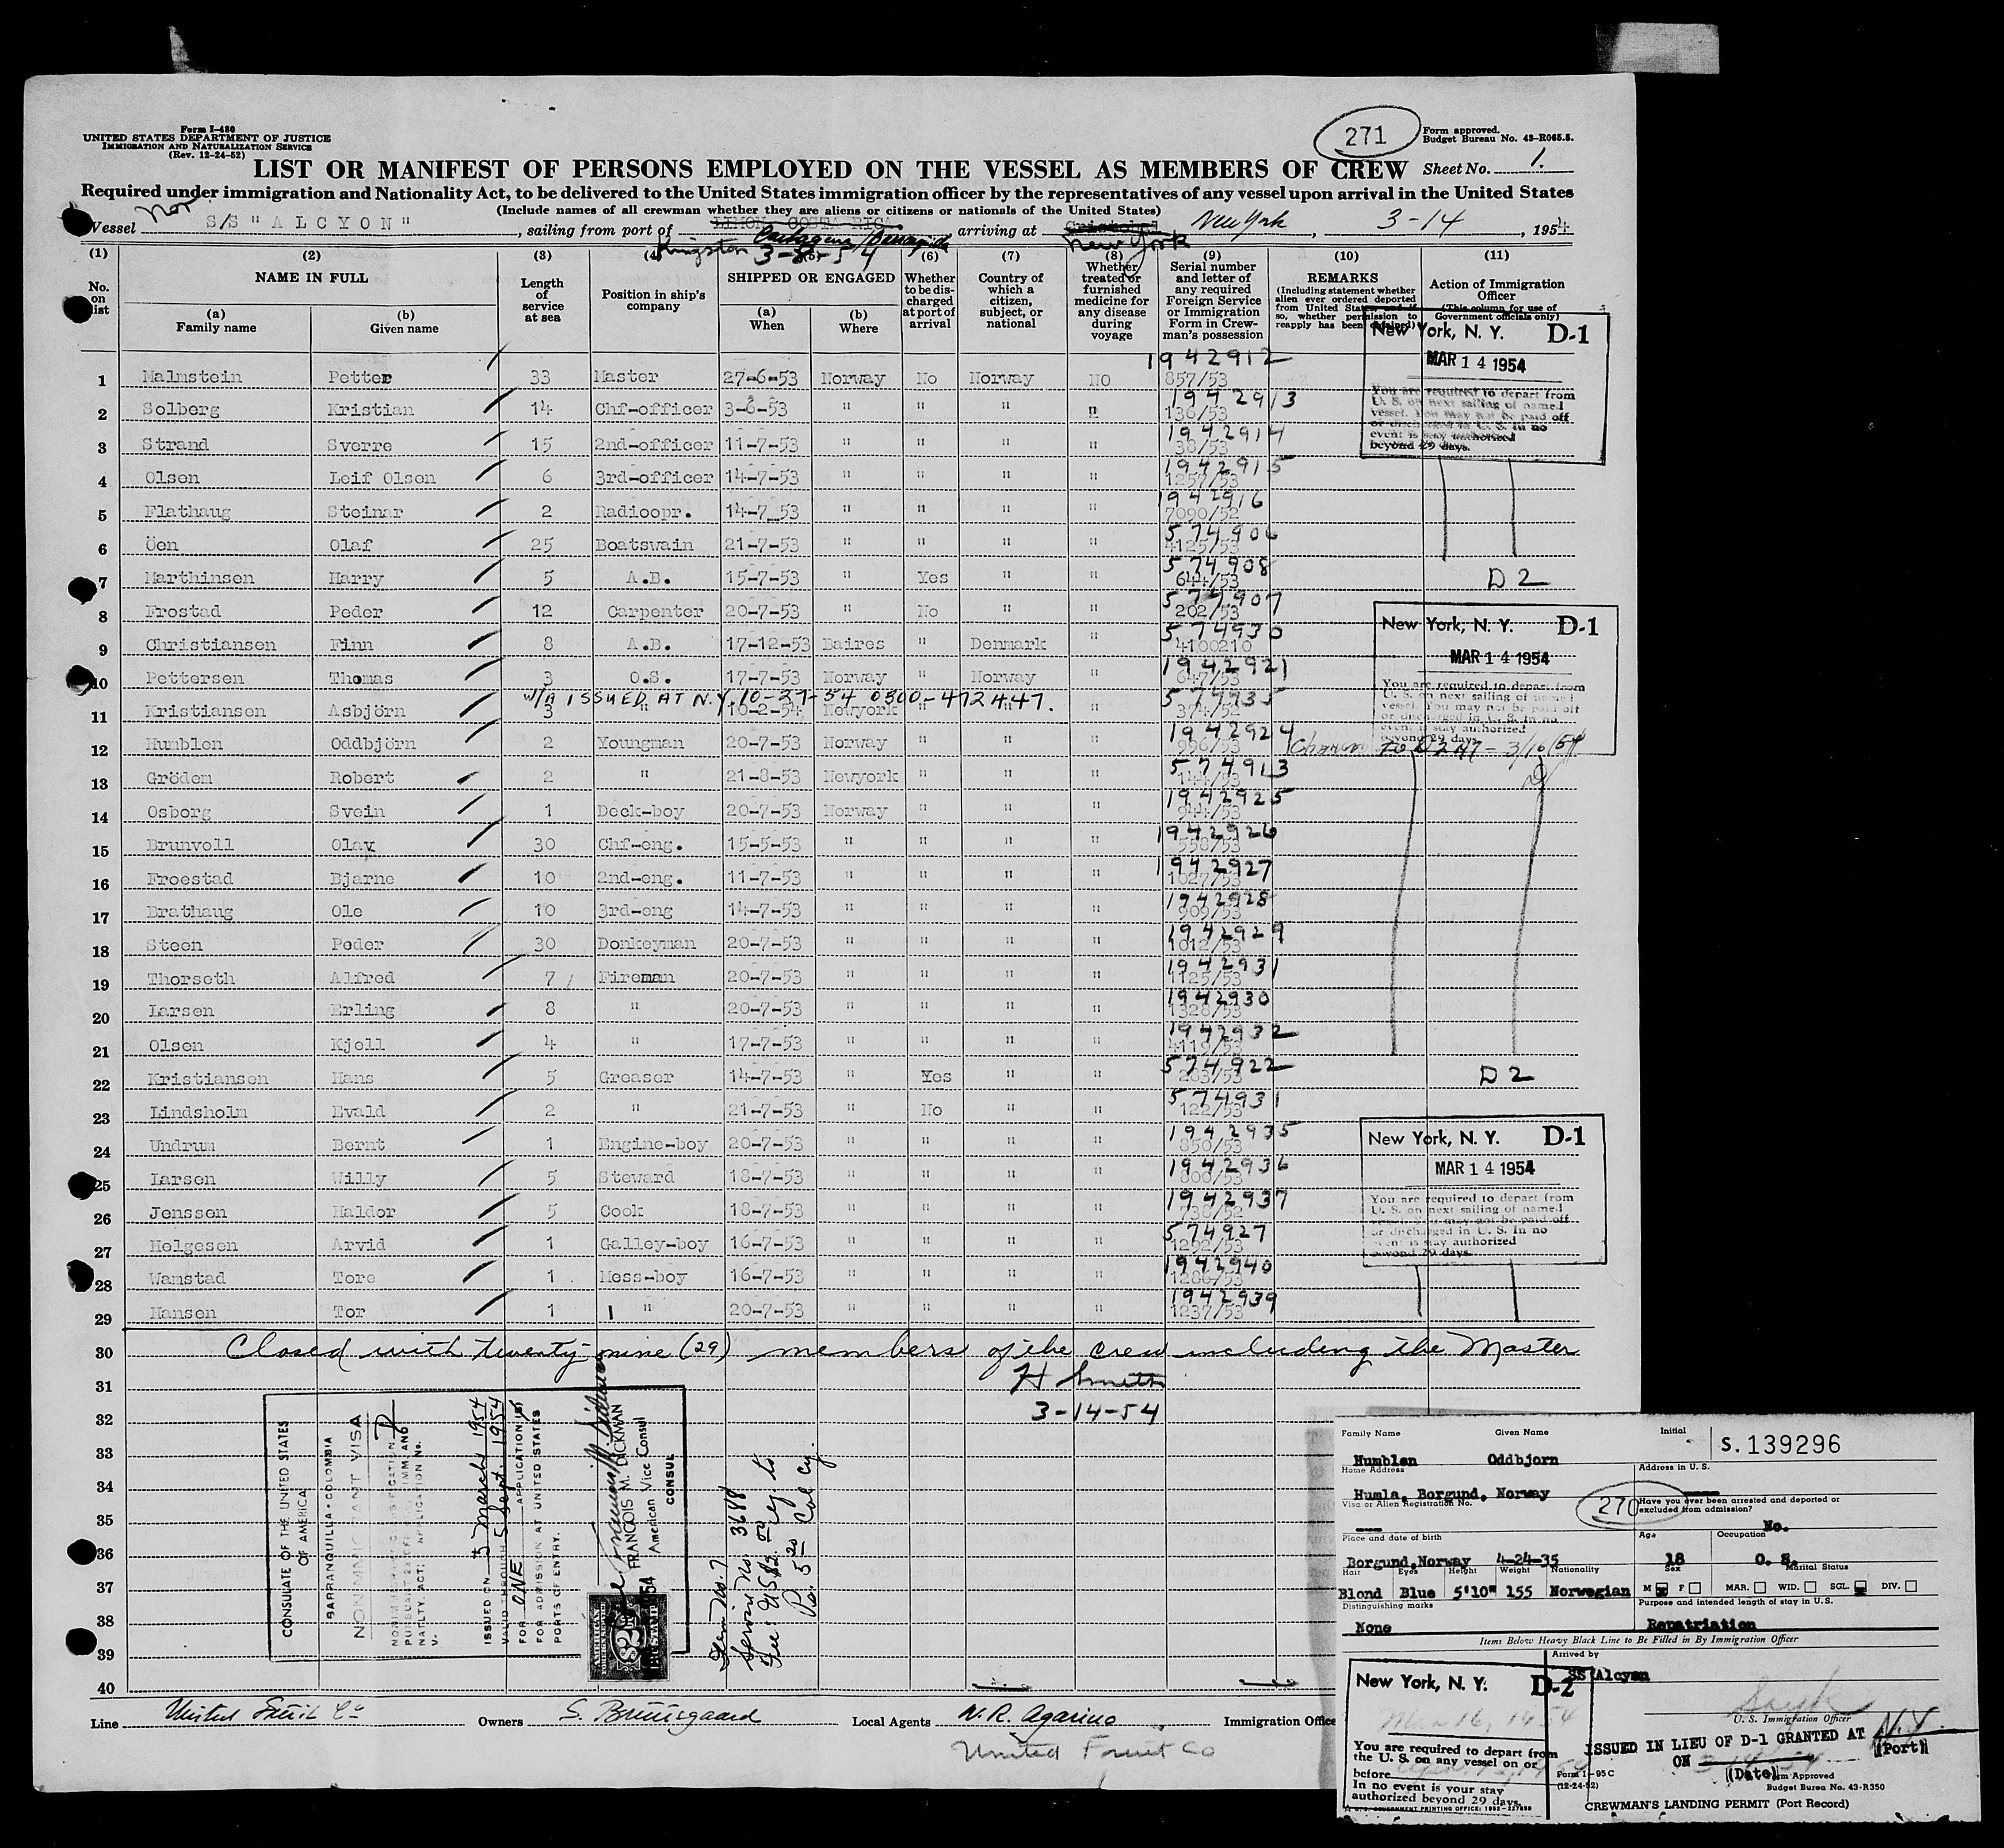 Form I-480
UNITED STATES DEPARTMENT OF JUSTICE
IMMIGRATION AND NATURALIZATION SERVICE
(Rev. 12-24-52)
271
Form approved.
Budget Bureau No. 43-R065.5.
LIST OR MANIFEST OF PERSONS EMPLOYED ON THE VESSEL AS MEMBERS OF CREW Sheet No. 1.
Required under immigration and Nationality Act, to be delivered to the United States immigration officer by the representatives of any vessel upon arrival in the United States
(Include names of all crewman whether they are aliens or citizens or nationals of the United States)
Vessel Nor S/S "ALCYON", sailing from port of LIMON COSTA RICA arriving at Cristobal New York, 3-14, 1954
Kingston Cartagena/Barranquilla New York
3-8-54
(1) (2) (3) (4) (5) (6) (7) (8) (9) (10) (11)
No. on list
NAME IN FULL
(a) Family name
(b) Given name
Length of service at sea
Position in ship's company
SHIPPED OR ENGAGED
(a) When
(b) Where
Whether to be discharged at port of arrival
Country of which a citizen, subject, or national
Whether treated or furnished medicine for any disease during voyage
Serial number and letter of any required Foreign Service or Immigration Form in Crewman's possession
REMARKS
(Including statement whether alien ever ordered deported from United States, and if so, whether permission to reapply has been obtained)
Action of Immigration Officer
(This column for use of Government officials only)
1 Malmstein Petter 33 Master 27-6-53 Norway No Norway NO 1942912 857/53
2 Solberg Kristian 14 Chf-officer 3-6-53 " " " " 1942913 136/53
3 Strand Sverre 15 2nd-officer 11-7-53 " " " " 1942914 38/53
4 Olsen Leif Olsen 6 3rd-officer 14-7-53 " " " " 1942915 1257/53
5 Flathaug Steinar 2 Radioopr. 14-7_53 " " " " 1942916 7090/52
6 Öen Olaf 25 Boatswain 21-7-53 " " " " 574906 4125/53
7 Marthinsen Harry 5 A.B. 15-7-53 " Yes " " 574908 644/53 D2
8 Frostad Peder 12 Carpenter 20-7-53 " No " " 574907 202/53
9 Christiansen Finn 8 A.B. 17-12-53 Baires " Denmark " 574930 4100210
10 Pettersen Thomas 3 O.S. 17-7-53 Norway " Norway " 1942921 647/53
W/A ISSUED AT N.Y. 10-27-54 0300-472447.
11 Kristiansen Asbjörn 3 " 16-2-54 Newyork " " " 574935 374/52
12 Humblen Oddbjörn 2 Youngman 20-7-53 Norway " " " 1942924 996/53
13 Grödem Robert 2 " 21-8-53 Newyork " " " 574913 144/53
14 Osborg Svein 1 Deck-boy 20-7-53 Norway " " " 1942925 944/53
15 Brunvoll Olav 30 Chf-eng. 15-5-53 " " " " 1942926 558/53
16 Froestad Bjarne 10 2nd-eng. 11-7-53 " " " " 1942927 1027/53
17 Brathaug Ole 10 3rd-eng 14-7-53 " " " " 1942928 909/53
18 Steen Peder 30 Donkeyman 20-7-53 " " " " 1942929 1012/53
19 Thorseth Alfred 7 Fireman 20-7-53 " " " " 1942931 1125/53
20 Larsen Erling 8 " 20-7-53 " " " " 1942930 1328/53
21 Olsen Kjell 4 " 17-7-53 " " " " 1942932 4119/53
22 Kristiansen Hans 5 Greaser 14-7-53 " Yes " " 574922 203/53 D2
23 Lindsholm Evald 2 " 21-7-53 " No " " 574931 122/53
24 Undrum Bernt 1 Engine-boy 20-7-53 " " " " 1942935 850/53
25 Larsen Willy 5 Steward 18-7-53 " " " " 1942936 800/53
26 Jenssen Haldor 5 Cook 18-7-53 " " " " 1942937 738/52
27 Helgesen Arvid 1 Galley-boy 16-7-53 " " " " 574927 1292/53
28 Wamstad Tore 1 Mess-boy 16-7-53 " " " " 1942940 1286/53
29 Hansen Tor 1 " 20-7-53 " " " " 1942939 1237/53
30 Closed with twenty-nine (29) members of the crew including the Master
31 H Smith
32 3-14-54
33
34
35
36
37
38
39
40
New York, N. Y. D-1
MAR 14 1954
You are required to depart from
U. S. on next sailing of named
vessel. You may not be paid off
or discharged in U. S. In no
event is stay authorized
beyond 29 days.
New York, N. Y. D-1
MAR 14 1954
You are required to depart from
U. S. on next sailing of named
vessel. You may not be paid off
or discharged in U. S. In no
event is stay authorized
beyond 29 days
to D2 3/16/54
New York, N. Y. D-1
MAR 14 1954
You are required to depart from
U. S. on next sailing of named
vessel. You may not be paid off
or discharged in U. S. In no
event is stay authorized
beyond 29 days.
CONSULATE OF THE UNITED STATES
OF AMERICA
BARRANQUILLA - COLOMBIA
NONIMMIGRANT VISA
D
ISSUED ON 5 March 1954
VALID THROUGH 5 Sept. 1954
FOR ONE APPLICATION(S)
FOR ADMISSION AT UNITED STATES
PORTS OF ENTRY.
FRANCOIS M. DICKMAN
American Vice Consul
CONSUL
AMERICAN
$2
Item No. 7
Service No. 3688
Line United Fruit Co Owners S. Bruusgaard Local Agents N.R. Agarino Immigration Office
United Fruit Co
Family Name Given Name Initial
Humblen Oddbjorn
S. 139296
Home Address
Humla, Borgund, Norway
Address in U. S.
Visa or Alien Registration No.
270
Have you ever been arrested and deported or excluded from admission?
No.
Place and date of birth
Borgund,Norway 4-24-35
Age 18
Occupation O. S.
Hair Eyes Height Weight Nationality
Blond Blue 5'10" 155 Norwegian
Sex M F
Marital Status MAR. WID. SGL. DIV.
Distinguishing marks
None
Purpose and intended length of stay in U.S.
Repatriation
Items Below Heavy Black Line to Be Filled in By Immigration Officer
Arrived by
SS Alcyon
New York, N. Y. D-2
Mar 16, 1954
You are required to depart from
the U. S. on any vessel on or
before
In no event is your stay
authorized beyond 29 days.
U.S. GOVERNMENT PRINTING OFFICE: 1952
U. S. Immigration Officer
ISSUED IN LIEU OF D-1 GRANTED AT N.Y.
(Port)
ON
(Date)
Form I-95 C
(12-24-52)
Form Approved
Budget Burea No. 43-R350
CREWMAN'S LANDING PERMIT (Port Record)